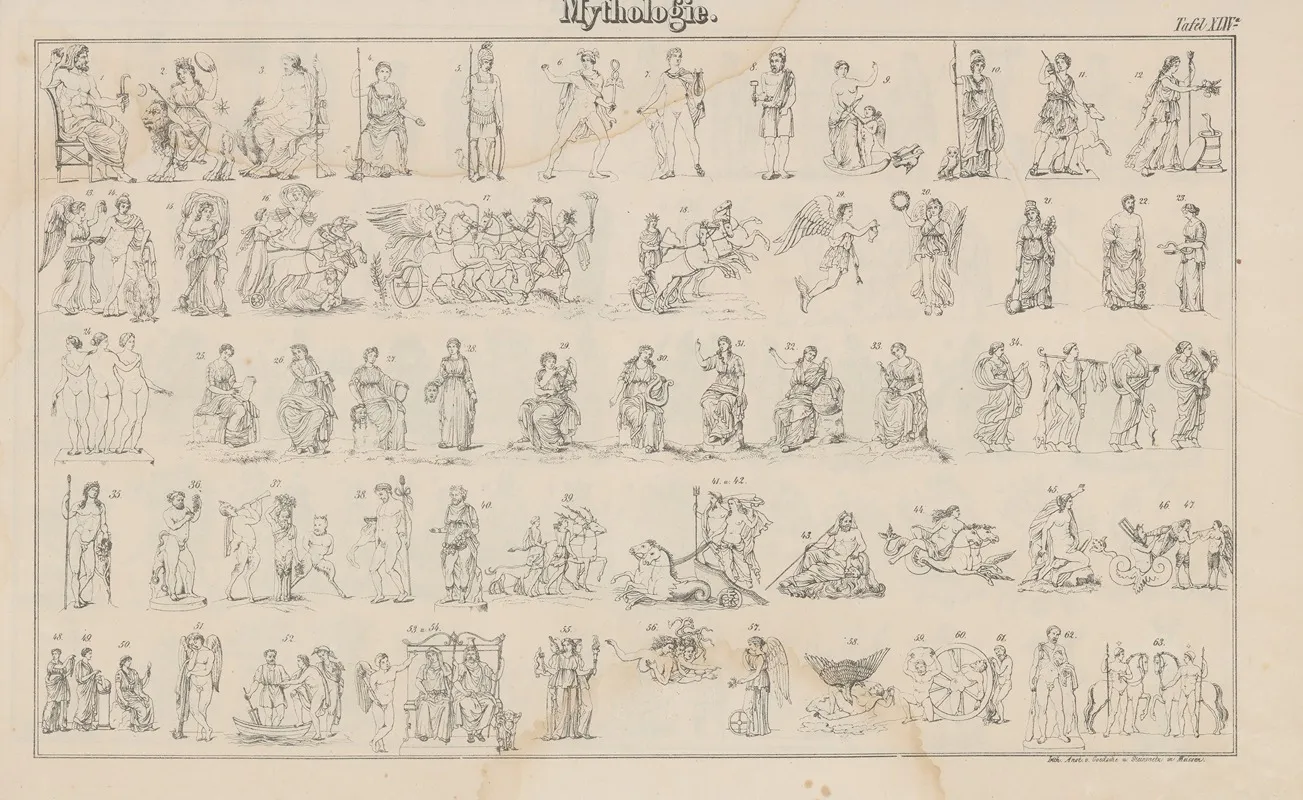 Mythologie.
Tafel XLIVa
1. 2. 3. 4. 5. 6. 7. 8. 9. 10. 11. 12.
13. 14. 15. 16. 17. 18. 19. 20. 21. 22. 23.
24. 25. 26. 27. 28. 29. 30. 31. 32. 33. 34.
35 36. 37. 38. 40. 39. 41. u. 42. 43. 44. 45. 46. 47.
48. 49. 50. 51 52. 53 u. 54. 55. 56. 57. 58. 59. 60. 61. 62. 63.
Lith. Anst. v. u. in Meissen.